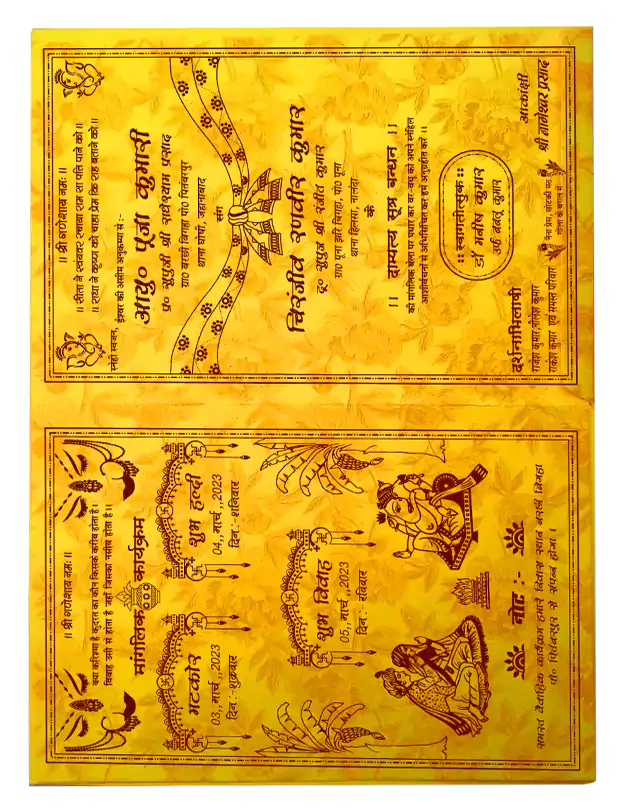 ॥ श्री गणेशाय नमः ॥
क्या करिश्मा है कुदरत का कौन किसके करीब होता है।
विवाह उसी से होता है जहाँ जिसका नसीब होता है।।
मांगलिक कार्यक्रम
मटकोर
03,, मार्च ,,2023
दिन :-शुक्रवार
शुभ हल्दी
04,, मार्च ,,2023
दिन :-शनिवार
शुभ विवाह
05,, मार्च ,,2023
दिन :- रविवार
नोट :-
समस्त वैवाहिक कार्यक्रम हमारे निवास स्थान बरछी बिगहा
पो० पितंबरपुर से संपन्न होगा ।
॥ श्री गणेशाय नमः ॥
॥ सीता ने स्वयंवर रचाया राम सा पति पाने को ॥
॥ राधा ने कृष्ण को चाहा प्रेम कि राह बताने को ॥
स्नेही स्वजन,
ईश्वर की असीम अनुकम्पा से :-
आयु० पूजा कुमारी
प्र० सुपुत्री श्री राधेश्याम प्रसाद
ग्रा० बरछी बिगहा पो० पितंबरपुर
थाना घोषी, जहानाबाद
संग
चिरंजीव रणवीर कुमार
द्र० सुपुत्र श्री रंजीत कुमार
ग्रा० पूना झरि बिगहा, पो० पूना
थाना हिलसा, नालंदा
की
।। दाम्पत्य सूत्र बन्धन ।।
की मांगलिक बेला पर पधार कर वर-वधू को अपने स्नेहिल
आशीर्वचनों से अभिसिंचित कर हमें अनुग्रहीत करें ।।
:: स्वागतोत्सुक ::
डॉ मनीष कुमार
उर्फ बबलू कुमार
दर्शनाभिलाषी
राजेश कुमार,नीलेश कुमार
राकेश कुमार एवं समस्त परिवार
आकांक्षी
श्री नागेश्वर प्रसाद